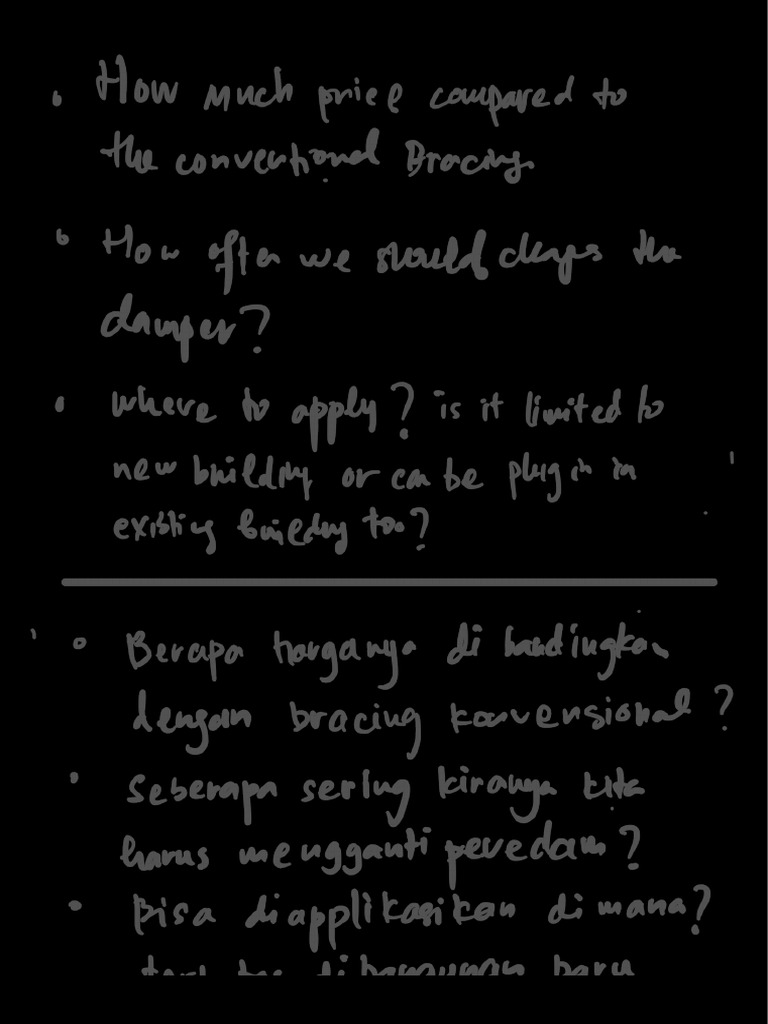 How much price compared to
the conventional Bracing.
How often we should the
damper?
where to apply? is it limited to
new building or can be plugin in
existing building too?
Berapa harganya di bandingkan
dengan bracing konvensional?
Seberapa sering kiranya kita
harus mengganti peredam?
Bisa diapplikasikan di mana?
dibangunan baru